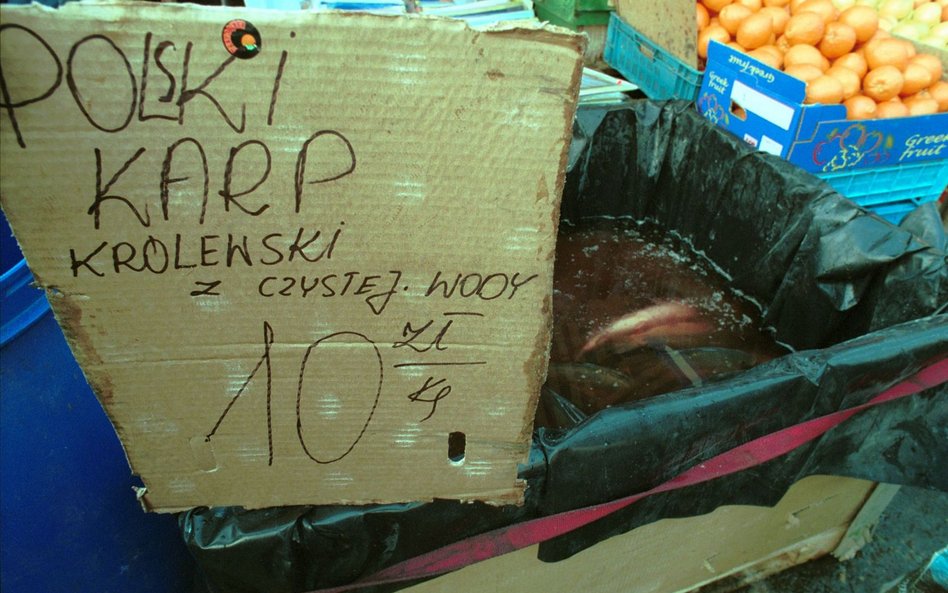 POLSKi
KARP
KRÓLEWSKI
Z CZYSTEJ. WODY
10 zł/kg
Greek fruit
Greek
fruit
Greek
fruit